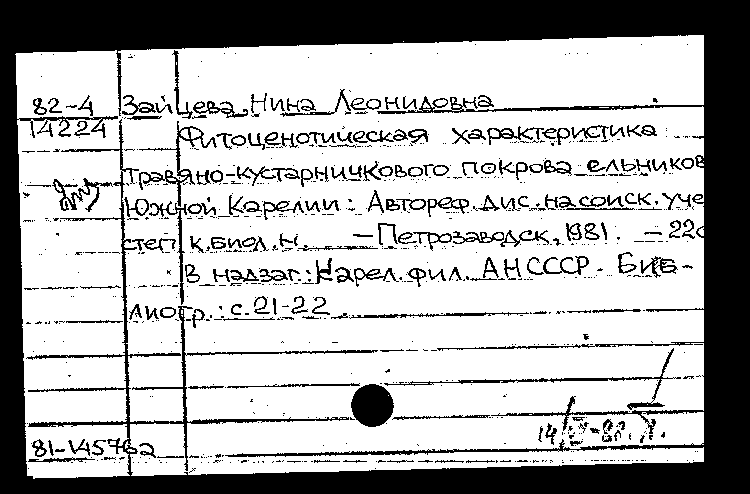 82-4 Зайцева, Нина Леонидовна
14224 Фитоценотическая характеристика
травяно-кустарничкового покрова ельников
Южной Карелии: Автореф. дис. на соиск. уче
степ. к. биол. н. – Петрозаводск, 1981. – 22с
В надзаг.: Карел. фил. АН СССР. Биб-
лиогр.: с. 21-22.
81-145762